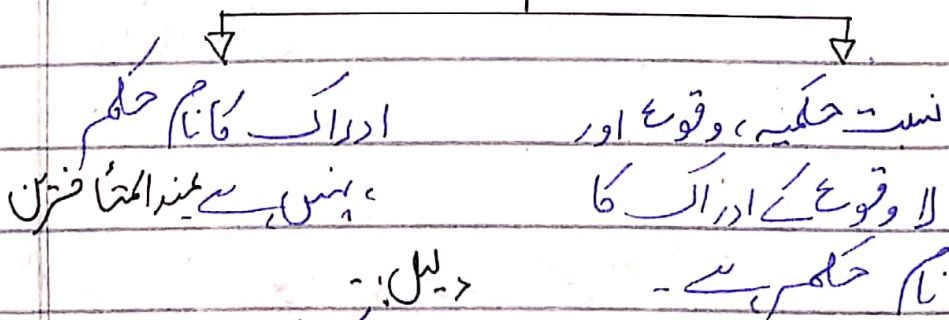 نسبت حکمیہ، وقوع اور
لا وقوع کے ادراک کا
نام حکم ہے۔
ادراک کا نام حکم
نہیں ہے عند المتأخرین
دلیل:۔